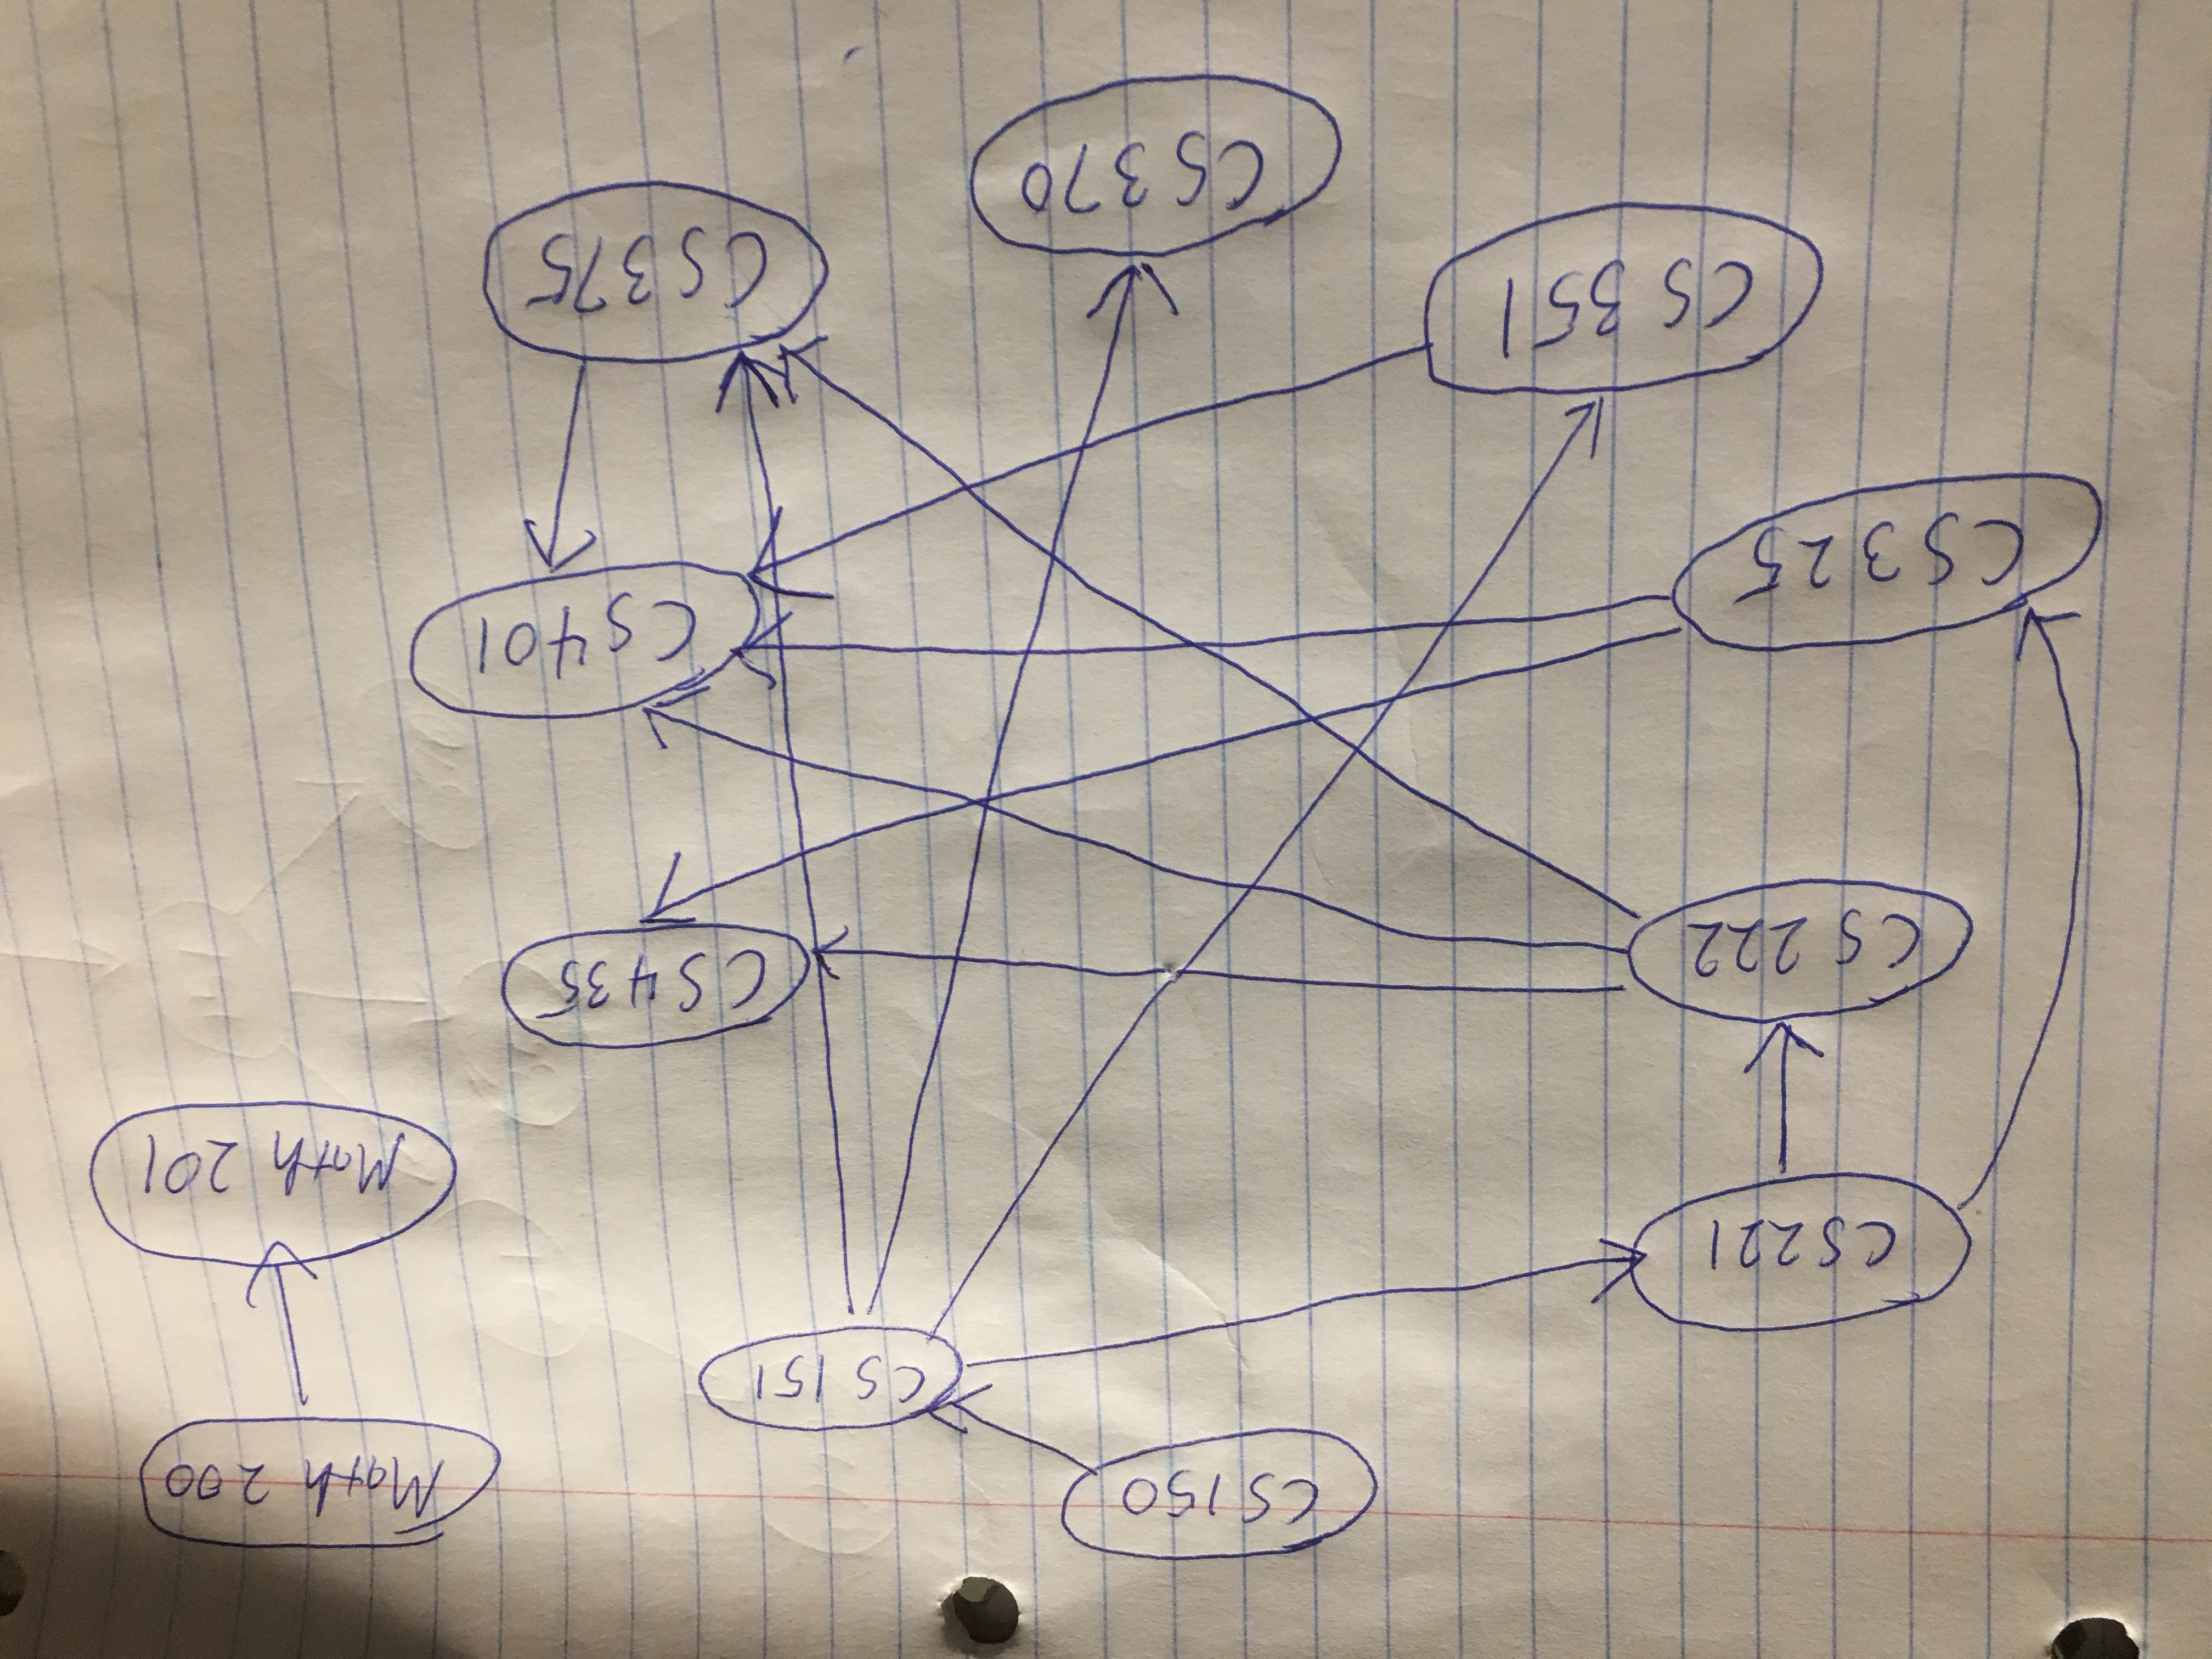 CS150
Math 200
CS 151
CS221
Math 201
CS 222
CS435
CS401
CS325
CS 351
CS375
CS370